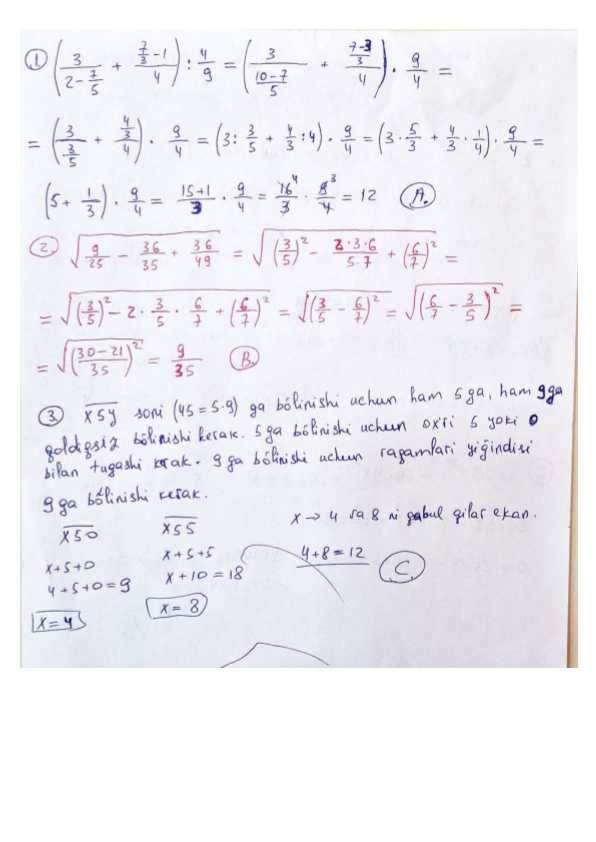 1) (3/(2-7/5) + (7/3-1)/4) : 4/9 = (3/((10-7)/5) + ((7-3)/3)/4) · 9/4 =
= (3/(3/5) + (4/3)/4) · 9/4 = (3 : 3/5 + 4/3 : 4) · 9/4 = (3 · 5/3 + 4/3 · 1/4) · 9/4 =
(5 + 1/3) · 9/4 = (15+1)/3 · 9/4 = 16⁴/3 · 9³/4 = 12 A.
2. √(9/25 - 36/35 + 36/49) = √((3/5)² - (2·3·6)/(5·7) + (6/7)²) =
= √((3/5)² - 2 · 3/5 · 6/7 + (6/7)²) = √((3/5 - 6/7)²) = √((6/7 - 3/5)²) =
= √(((30-21)/35)²) = 9/35 B.
3. x5y soni (45 = 5·9) ga bólinishi uchun ham 5 ga, ham 9 ga
qoldiqsiz bólinishi kerak. 5 ga bólinishi uchun oxiri 5 yoki 0
bilan tugashi kerak. 9 ga bólinishi uchun raqamlari yiğindisi
9 ga bólinishi kerak.
x50 x55 x → 4 va 8 ni qabul qilar ekan.
x+5+0 x+5+5 4+8=12 C
4+5+0=9 x+10=18
x=4 x=8